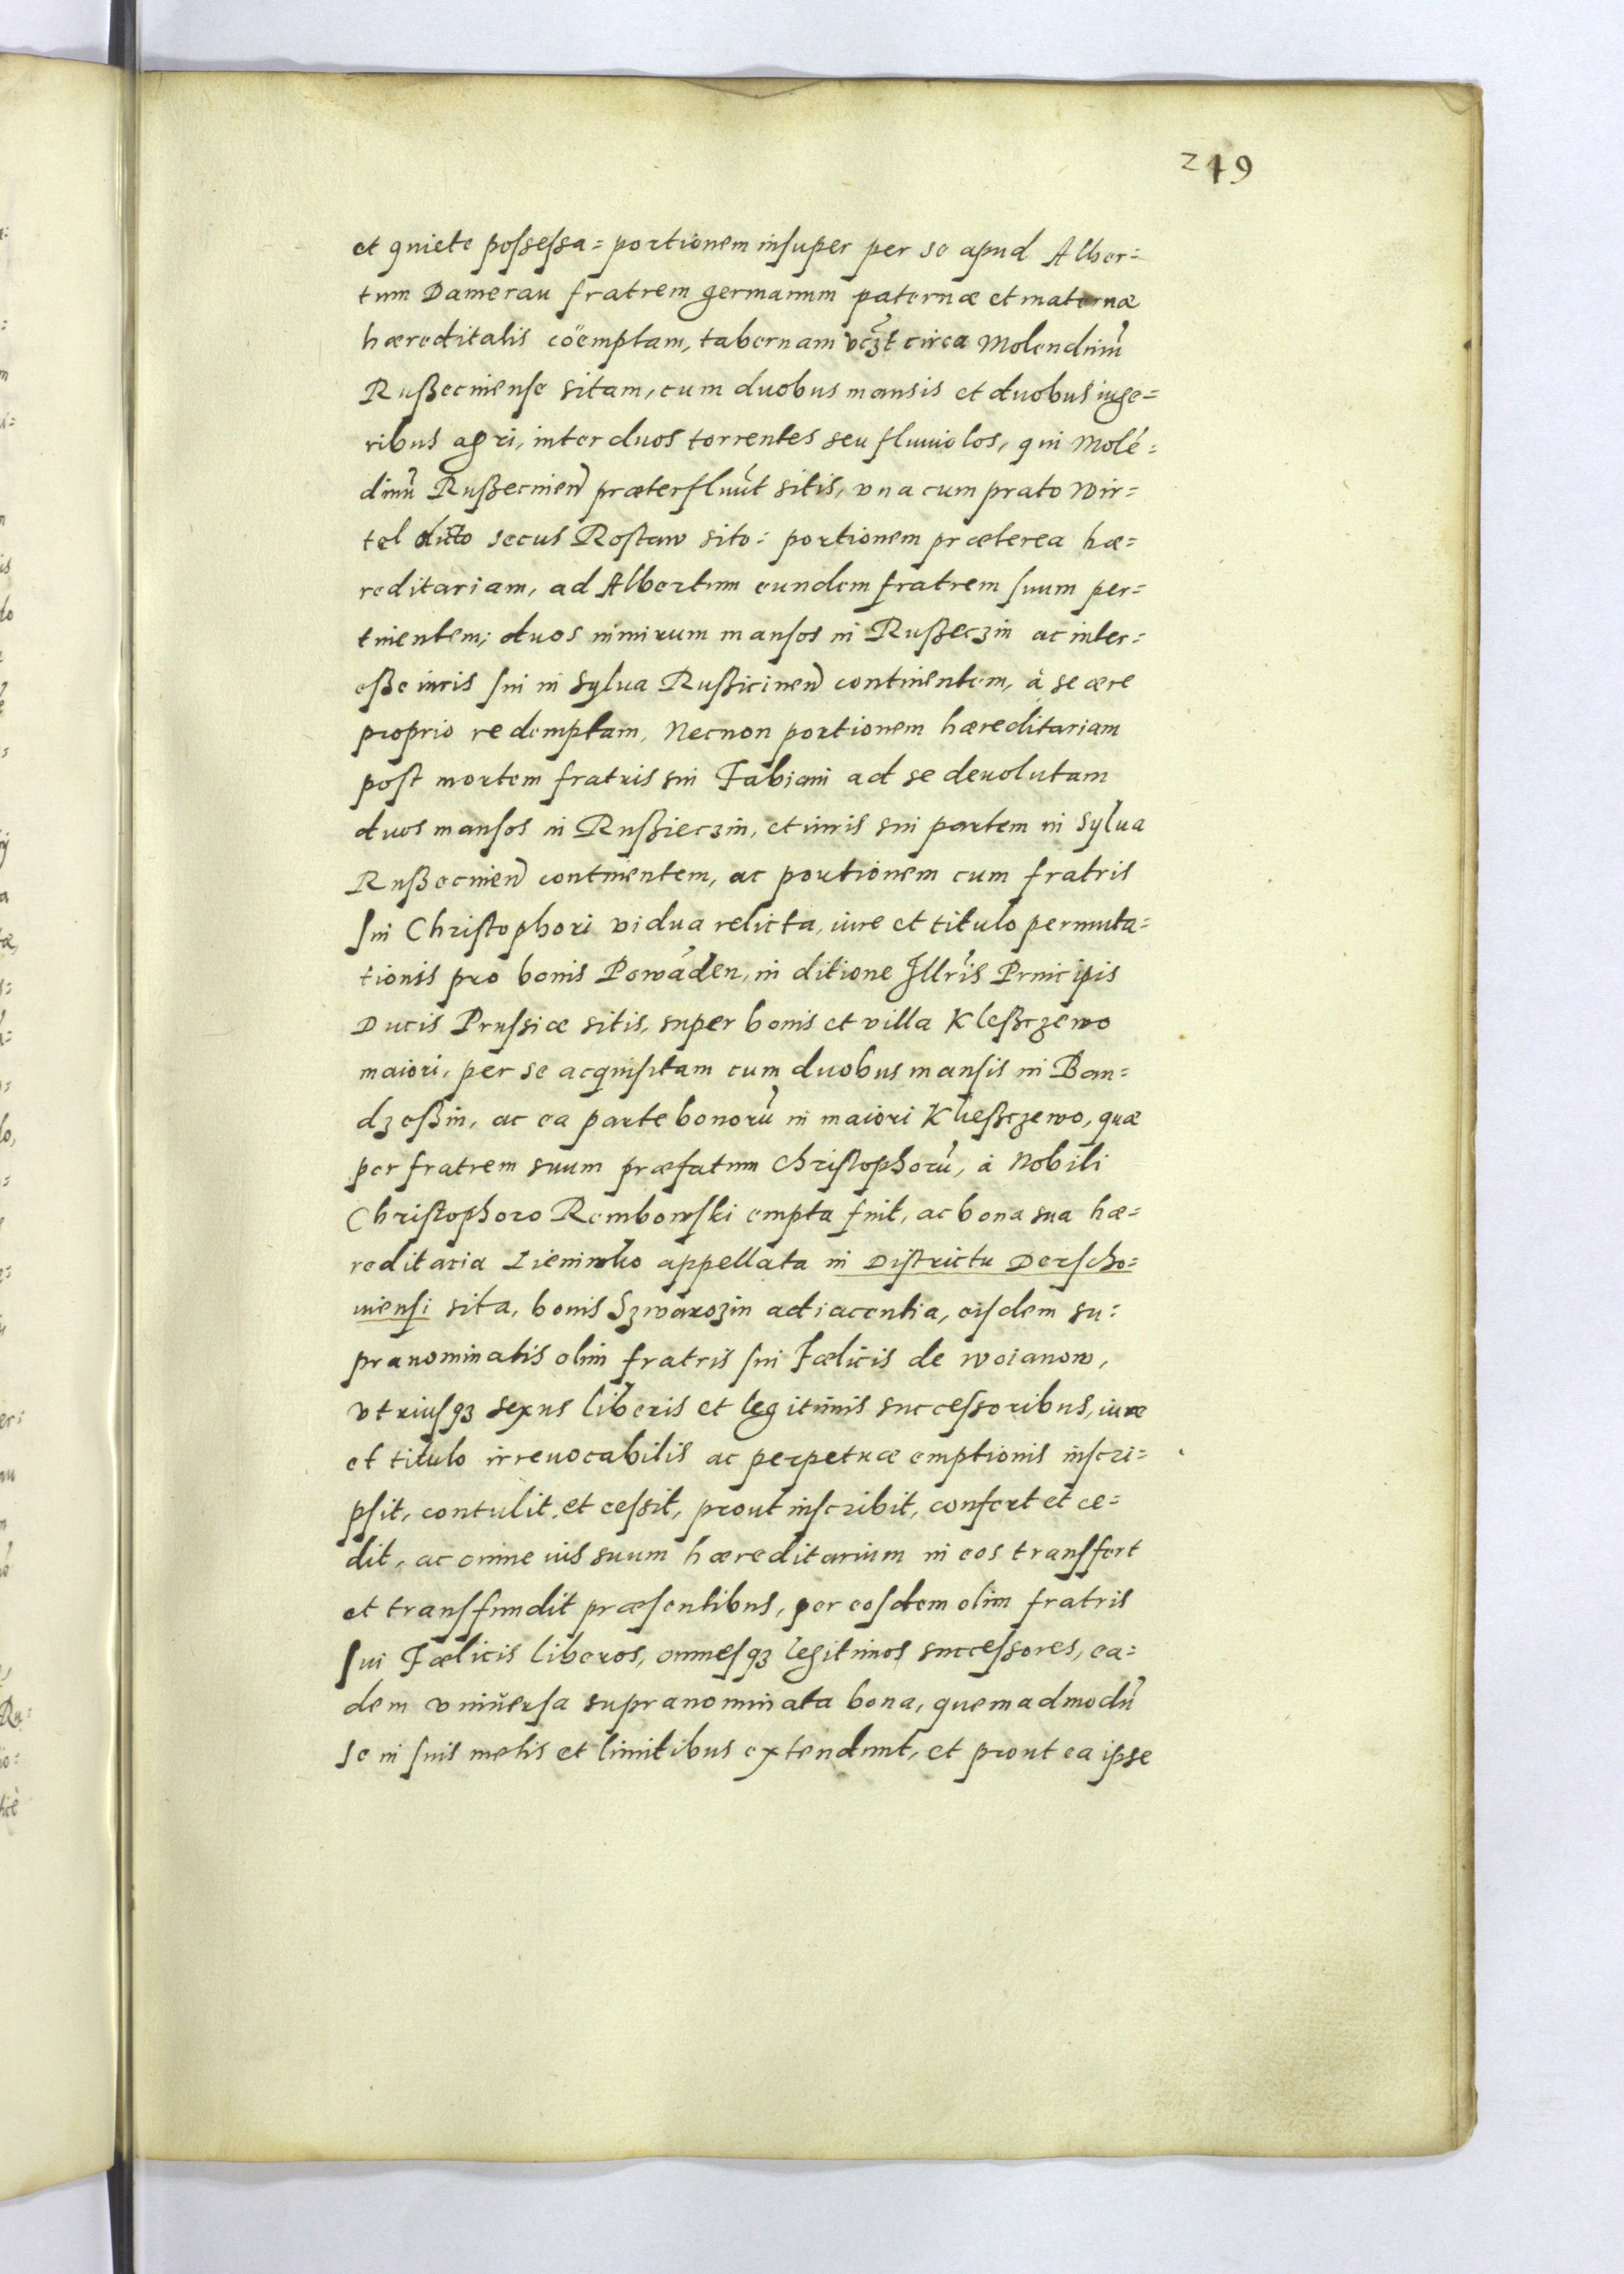 249
et quiete possessa= portionem insuper per se apud Alber=
tum Damerau fratrem germanum paternæ et maternæ
hæreditatis cöemptam, tabernam vcꝫt circa Molendinũ
Rußecinense sitam, cum duobus mansis et duobus iuge=
ribus agri, inter duos torrentes seu fluuiolos, qui Molẽ=
dinũ Rußecinen̄ præterfluũt sitis, vna cum prato Wir=
tel dicto secus Rostaw sito: portionem præterea hæ=
reditariam, ad Albertum eundem fratrem suum per=
tinentem; duos nimirum mansos in Rußeczin ac inter=
eße iuris sui in Sylua Rußicinen̄ continentem, à se ære
proprio redemptam, Necnon portionem hæreditariam
post mortem fratris sui Fabiani ad se deuolutam
duos mansos in Rußieczin, et iuris sui partem in Sylua
Rußecinen̄ continentem, ac portionem cum fratris
sui Christophori vidua relicta, iure et titulo permuta=
tionis pro bonis Powâden, in ditione Jllr̃is Principis
Ducis Prussiæ sitis, super bonis et villa Kleßczewo
maiori, per se acquisitam cum duobus mansis in Ban=
dzeßin, ac ea parte bonorũ in maiori Klieβczewo, quæ
per fratrem suum præfatum Christophorũ, à Nobili
Christophoro Rembowski empta fuit, ac bona sua hæ=
reditaria Lieninko appellata in Districtu Derscho=
uiensi sita, bonis Szwarozin adiacentia, eisdem su=
pranominatis olim fratris sui Fælicis de Woianow,
vtriusqꝫ sexus liberis et legitimis successoribus, iure
et titulo irreuocabilis ac perpetuæ emptionis inscri=
psit, contulit, et cessit, prout inscribit, confert et ce=
dit, ac omne ius suum hæreditarium in eos transfert
et transfundit præsentibus, per eosdem olim fratris
sui Fælicis liberos, omnesqꝫ legitimos successores, ea=
dem vniuersa supranominata bona, quemadmodũ
se in suis metis et limitibus extendunt, et prout ea ipse